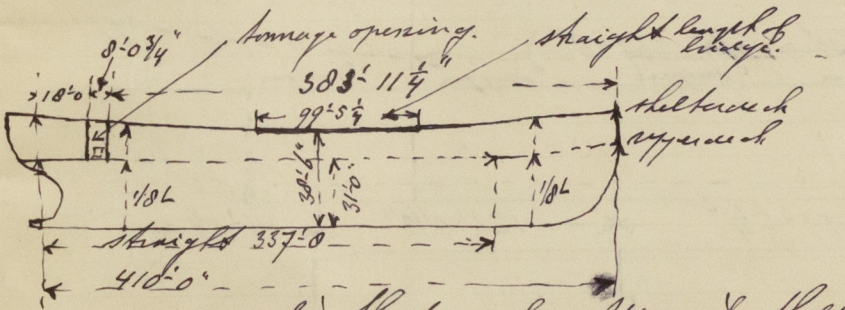 tonnage opening.
straight length of
bridge.
8'-0 3/4"
18'-0
383'-11 1/4"
99'-5 1/4
shelterdeck
upperdeck
1/8 L
38'-6"
31'-0"
1/8 L
straight 337'-0
410'-0"